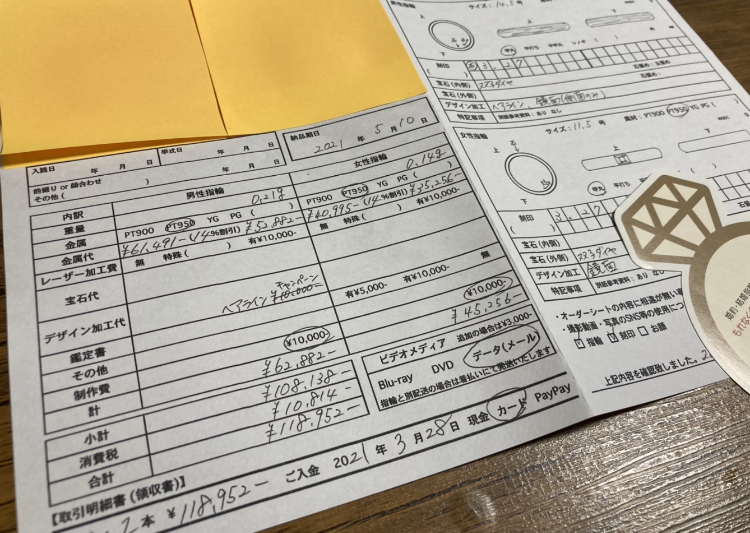 男性指輪 サイズ:14.5号
上 下
甲丸 平打ち
刻印
3.27
石留め:
宝石(内側)
宝石(外側)
デザイン加工 ヘアライン、鏡面(側面のみ)
特記事項 別紙参考資料:あり なし
女性指輪 サイズ:11.5号 素材:PT900 PT950 YG PG
上 下
甲丸 平打ち
刻印 3.27
宝石(内側)
宝石(外側)
デザイン加工 鏡面
特記事項 別紙参考資料:あり なし
・オーダーシートの内容に相違が無い事
・撮影動画・写真のSNS等の使用につ
指輪 刻印 お顔
上記内容を確認致しました。
入籍日 年 月 日 挙式日 年 月 日 納品期日 2021年5月10日
前撮り or 顔合わせ 年 月 日
その他( )
内訳 男性指輪 女性指輪
重量 0.21g 0.14g
金属 PT900 PT950 YG PG ( ) PT900 PT950 YG PG ( )
金属代 ¥61,491-(14%割引)¥52,882- ¥40,995-(14%割引)¥35,256-
レーザー加工費 無 特殊( ) 有¥10,000- 無 特殊( ) 有¥10,000-
宝石代
デザイン加工代 ヘアライン キャンペーン
鑑定書 無 有¥5,000- 有¥10,000-
その他
制作費 ¥10,000- ¥10,000-
計 ¥62,882- ¥45,256-
小計 ¥108,138-
消費税 ¥10,814-
合計 ¥118,952-
ビデオメディア 追加の場合は¥3,000-
Blu-ray DVD データ(メール)
指輪と別記送の場合は着払いにて発送いたします
【取引明細書(領収書)】 ご入金 2021年3月28日 現金 カード PayPay
2本 ¥118,952-